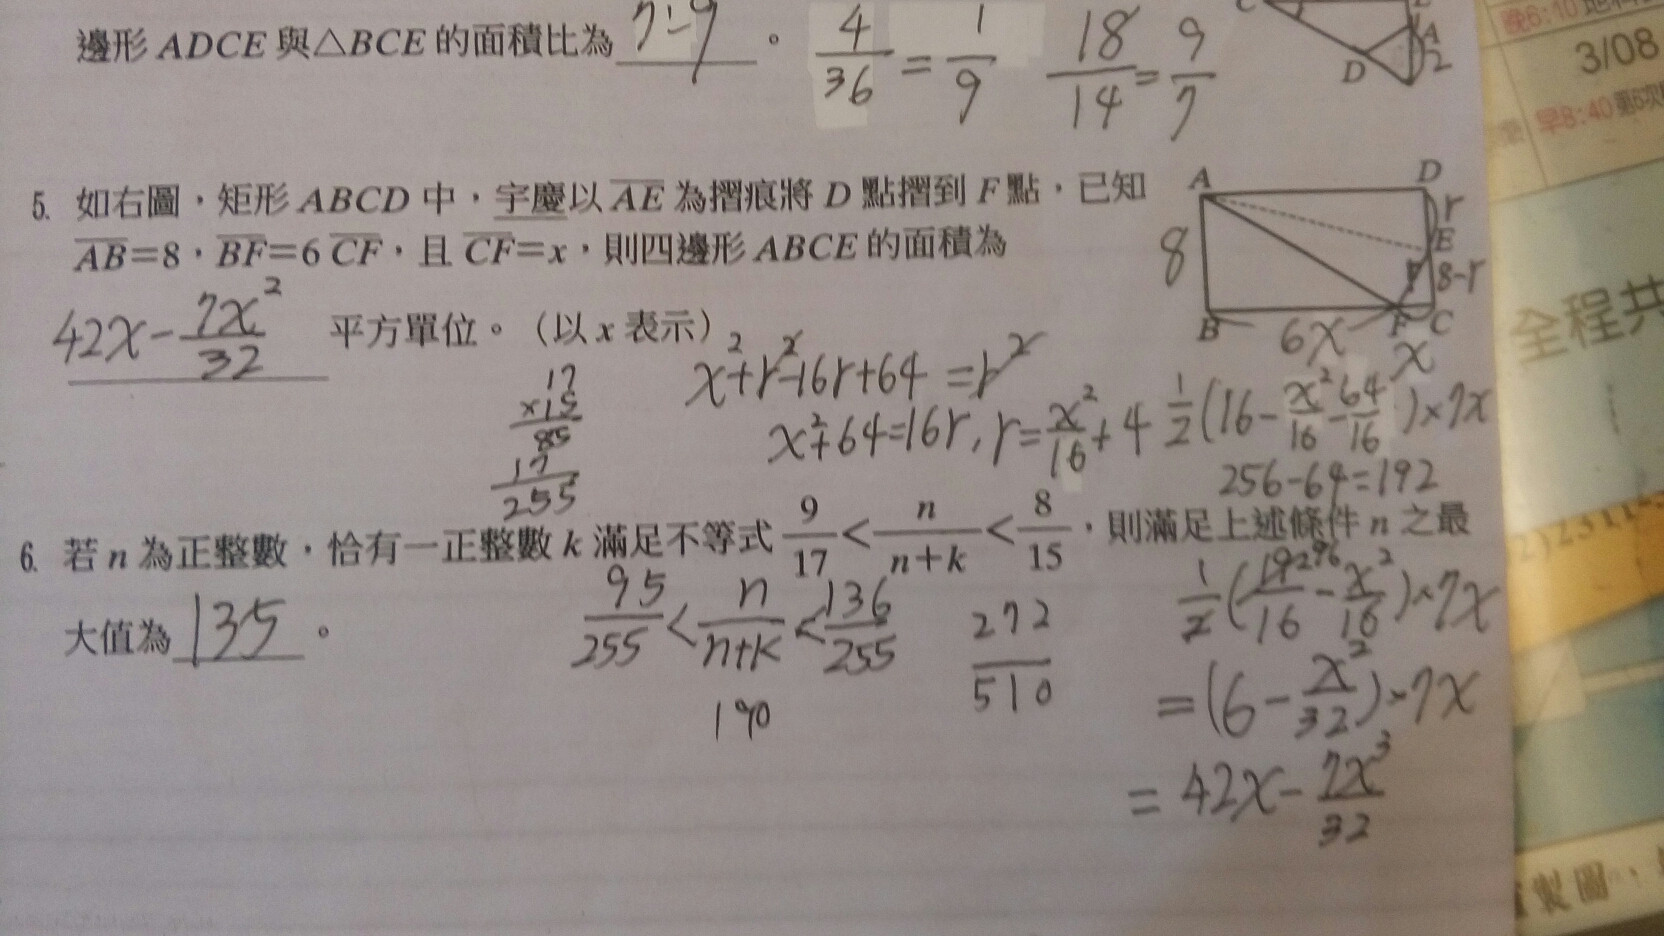 邊形 ADCE 與△BCE 的面積比為 7:9 。
4/36 = 1/9
18/14 = 9/7
D
A
2
5. 如右圖，矩形 ABCD 中，宇慶以 AE 為摺痕將 D 點摺到 F 點，已知
AB=8，BF=6 CF，且 CF=x，則四邊形 ABCE 的面積為
42x-7x²/32 平方單位。（以 x 表示）
A D
r
8 E
r 8-r
B 6x F C
x
17
×15
85
17
255
x²+r²-16r+64=r²
x²+64=16r, r=x²/16+4
1/2(16-x²/16-64/16)×7x
256-64=192
6. 若 n 為正整數，恰有一正整數 k 滿足不等式 9/17 < n/n+k < 8/15，則滿足上述條件 n 之最
大值為 135 。
95/255 < n/n+k < 136/255
272/510
190
1/2(192/16-x²/16)×7x
=(6-x²/32)×7x
=42x-7x³/32
3/08
晚6:10
早8:40
全程共
製圖